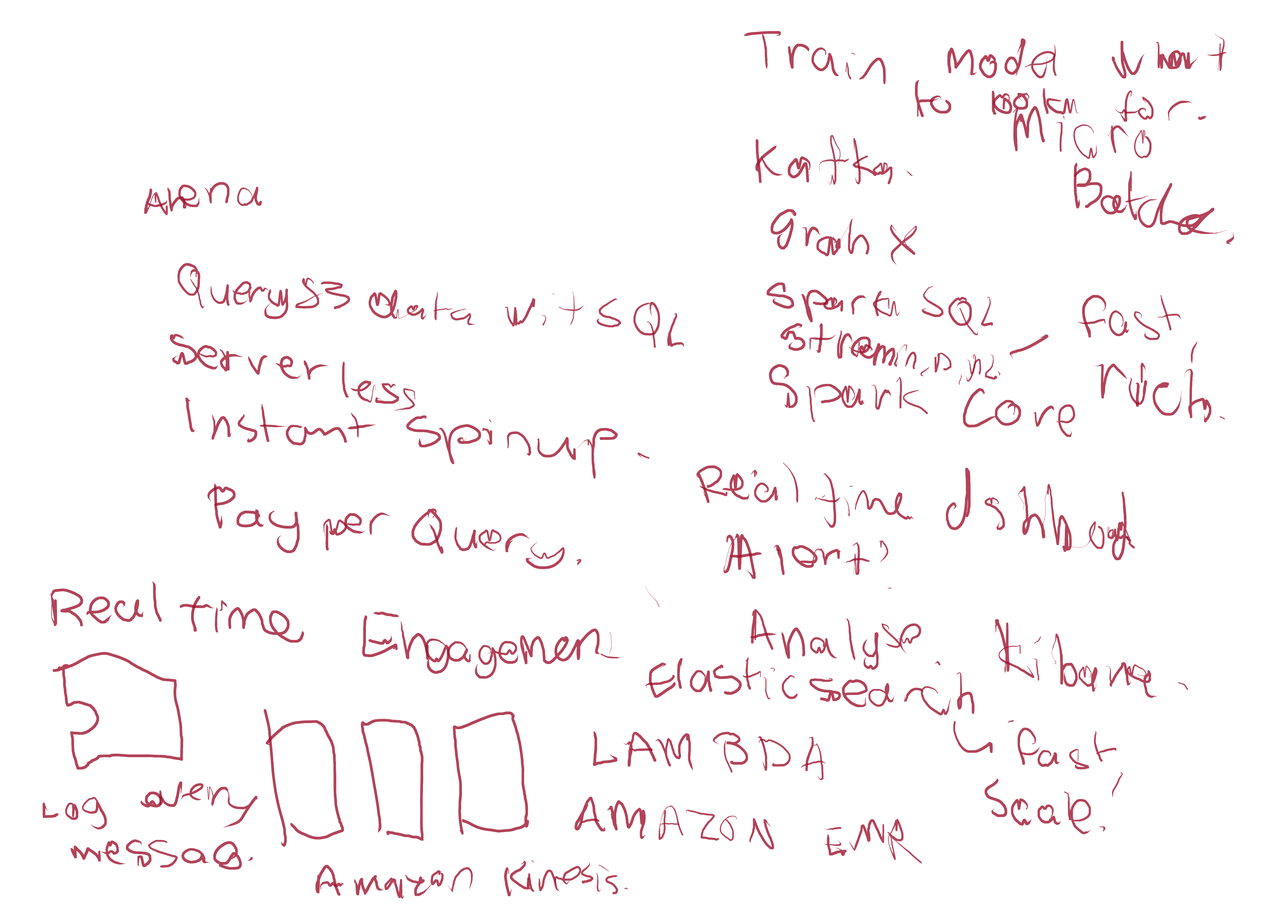 Train model what
to look for.
Micro
Batche,
Kafka.
Grah X
Spark SQL
Spark Core
fast,
rich.
Arena
Query S3 data wit SQL
Serverless
Instant Spinup.
Pay per Query.
Real time dshbod
Alert
Real time Engagemen
Analyse
Kibana.
Elasticsearch
fast
Scale!
Log every
messag.
Amazon Kinesis.
LAMBDA
AMAZON EMR